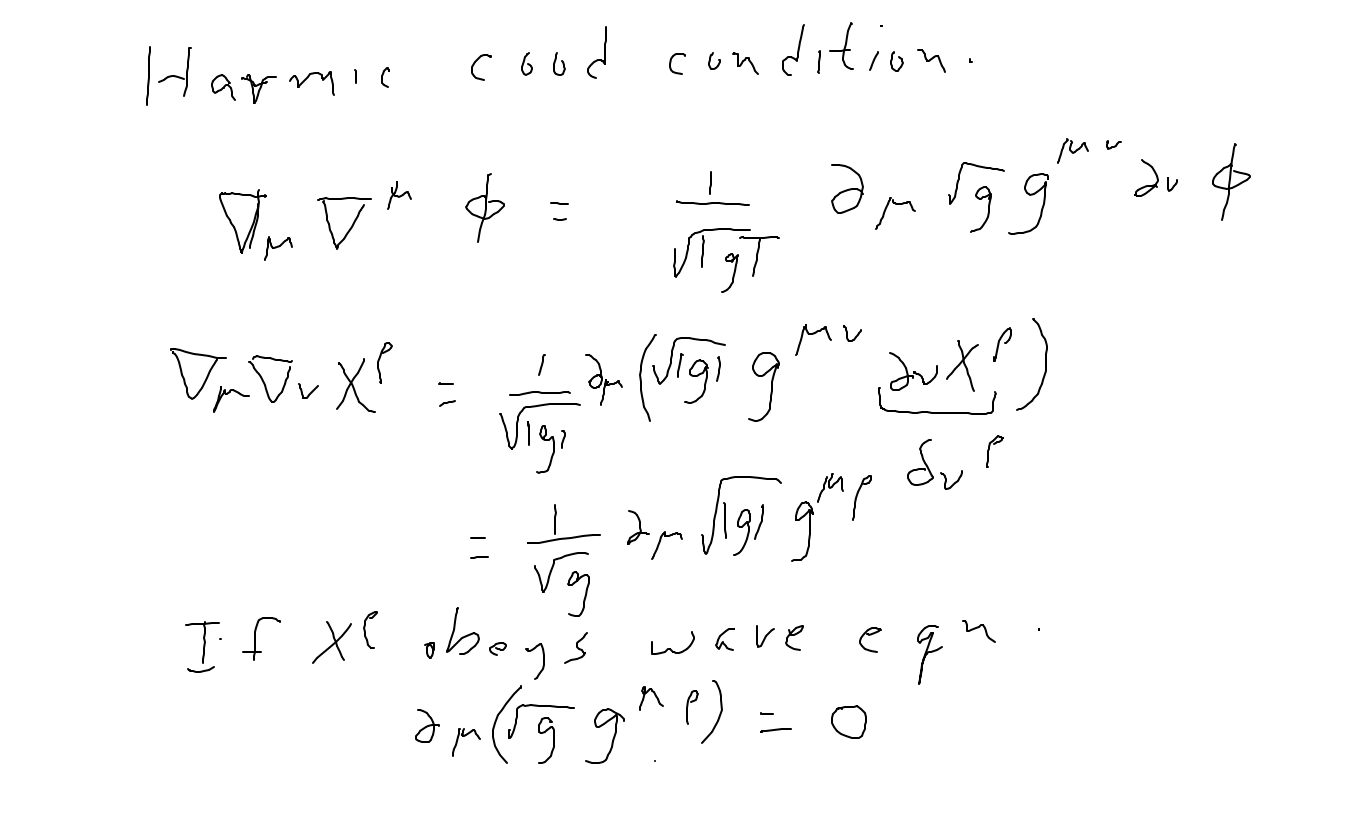 Harmic cood condition.
∇_μ ∇^μ ϕ = 1/√|g| ∂_μ √g g^{μν} ∂_ν ϕ
∇_μ ∇_ν X^ρ = 1/√|g| ∂_μ (√|g| g^{μν} ∂_ν X^ρ)
δ_ν^ρ
= 1/√g ∂_μ √|g| g^{μρ}
If X^ρ obeys wave eqn.
∂_μ(√g g^{μρ}) = 0